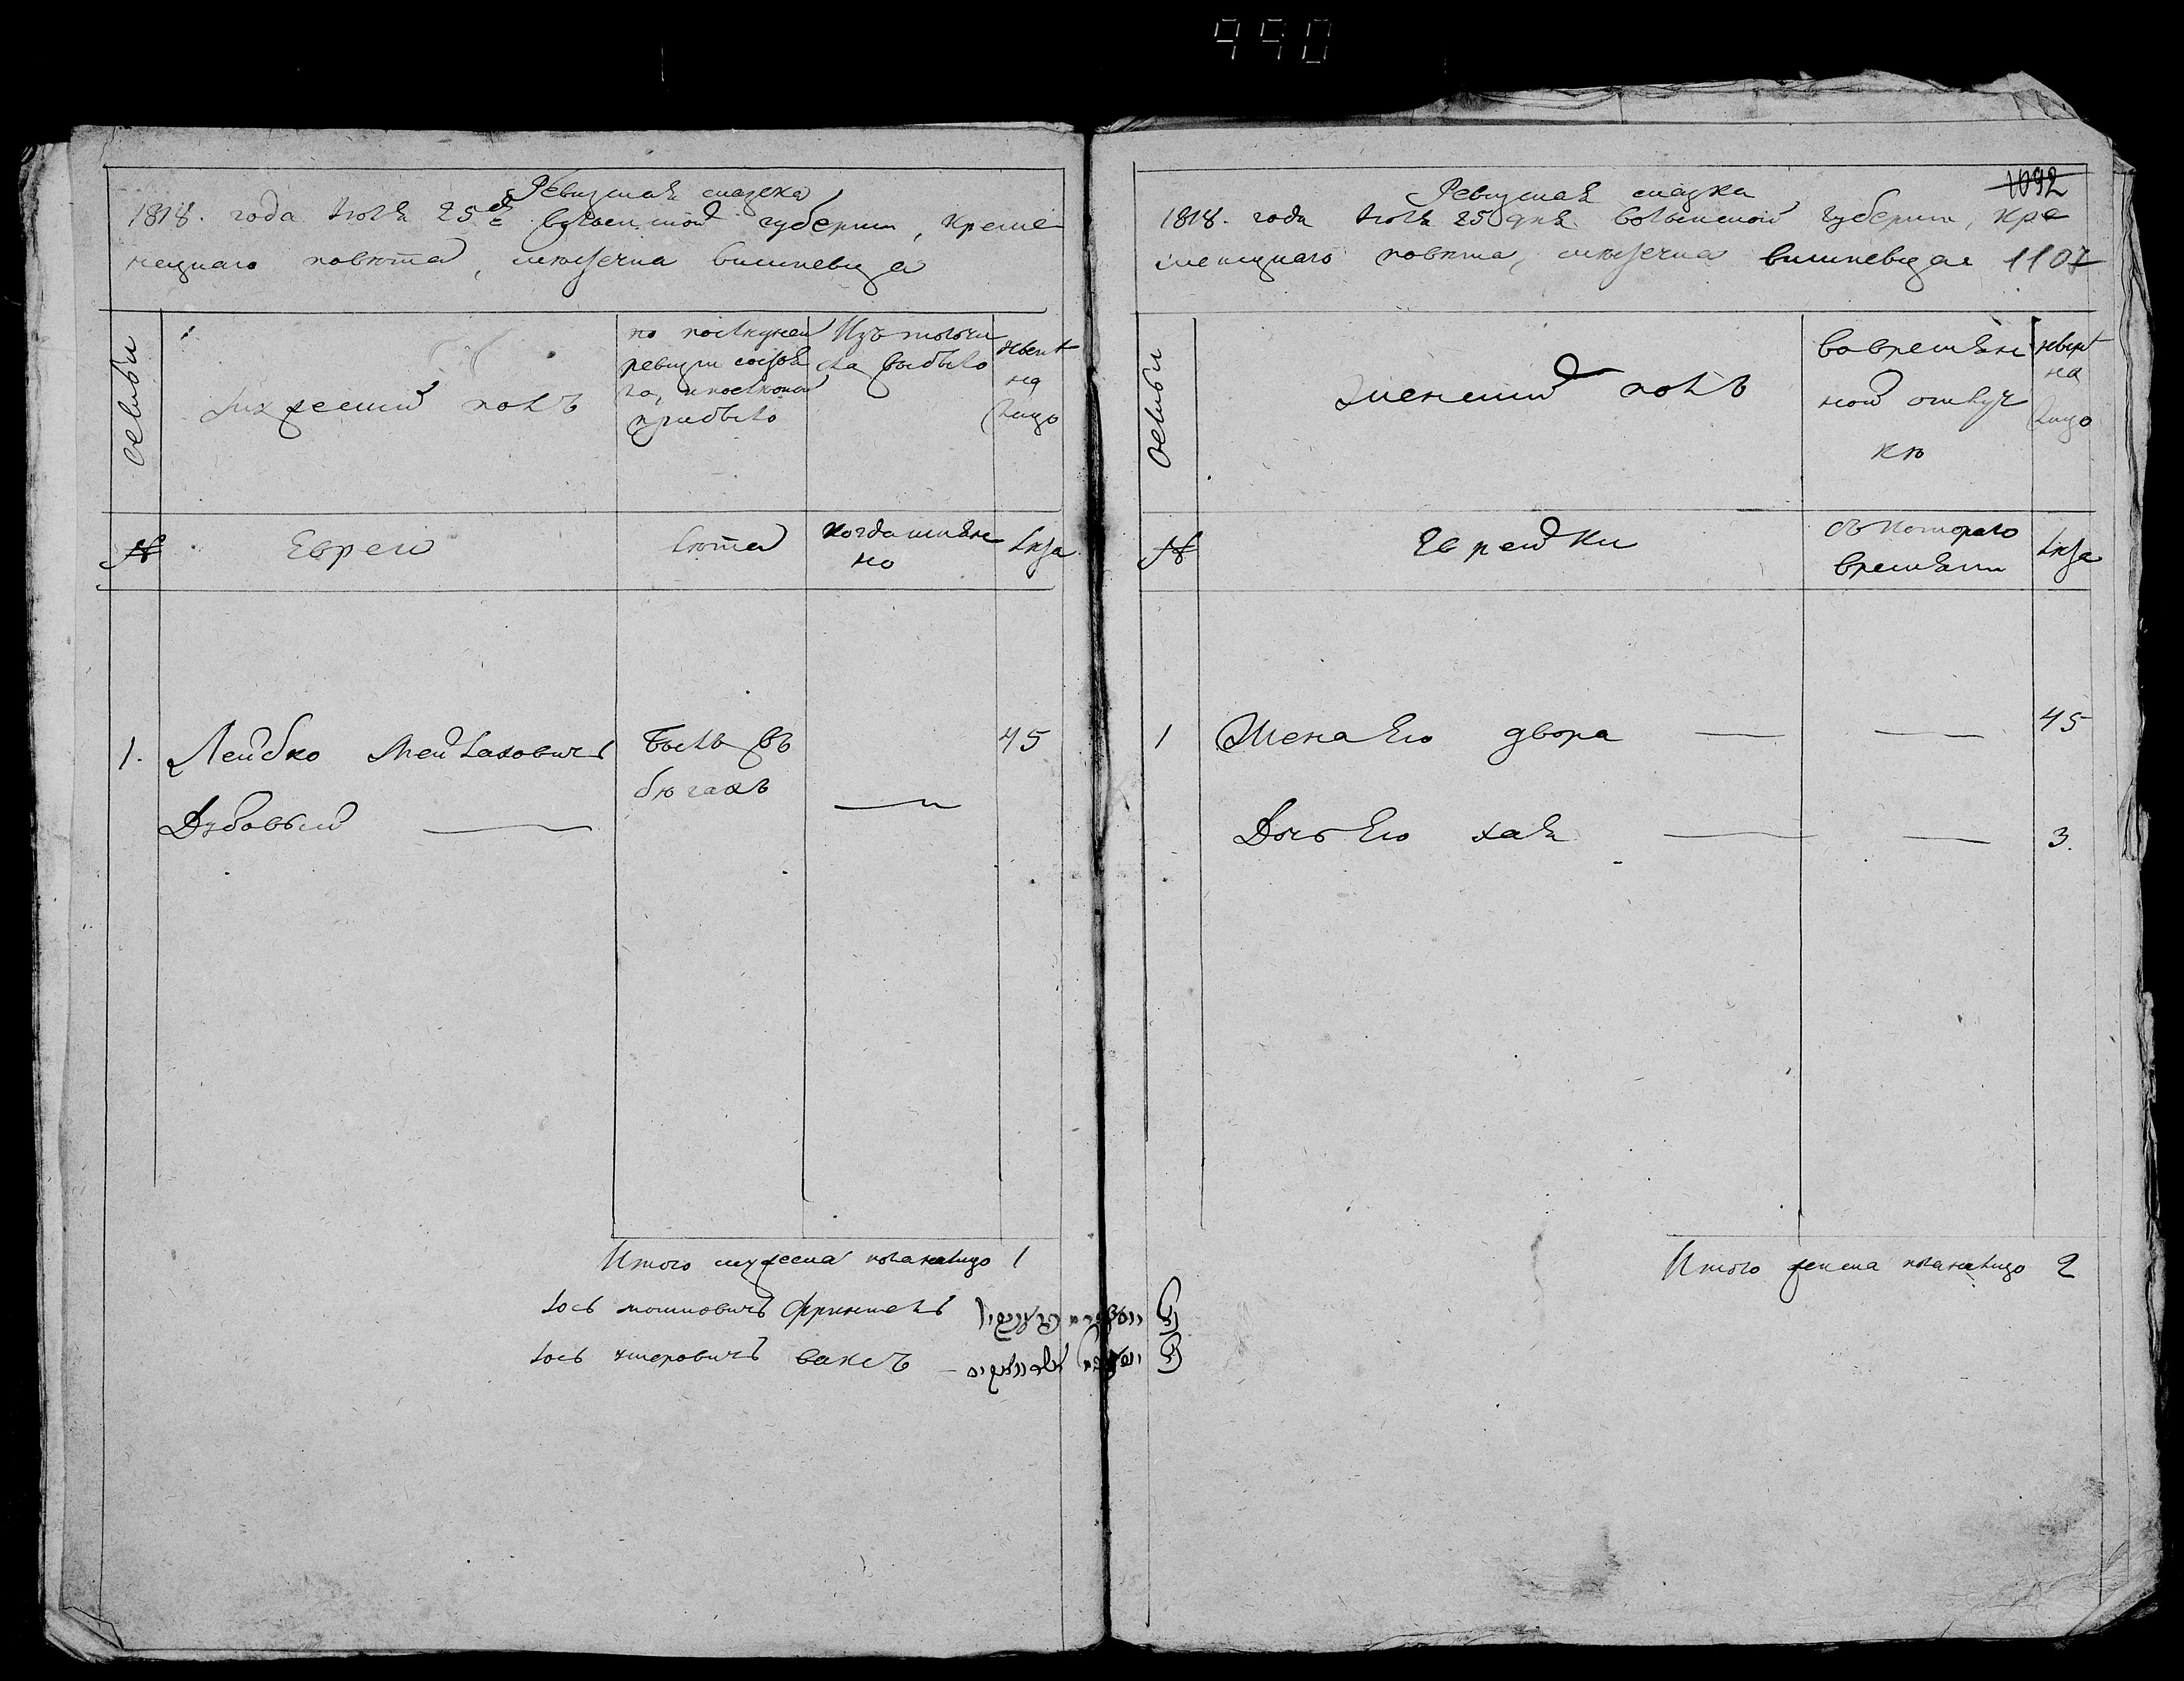 990
Ревизская сказка
1818. года Июля 25 дня Волынской губернии, Креме
нецкаго повета, местечка Вишневца
Семьи
Мужеский полъ
по последней
ревизии состоя
ло, и после оной
прибыло
Изъ того чи
сла выбыло
Ныне
на
лицо
№
Евреи
Лета
когда имянно
но
Лета
1.
Лейбко Мейлахович
Дубовый
Былъ въ
бегахъ
—
45
Итого мужеска пола налицо 1
Иось Мошковичъ Фринкель
Иось УшеровичъВаксъ
1092
Ревизская сказка
1818. года Июля 25 дня Волынской губернии, Кре
менецкаго повета, местечка Вишневца 1107
Семьи
Женский полъ
во времен
ной отлуч
ке
Ныне
на
лицо
№
Еврейки
съ котораго
времяни
Лета
1 Жена Его Двора — — 45
Дочь Его Хая — — 3.
Итого женска пола налицо 2